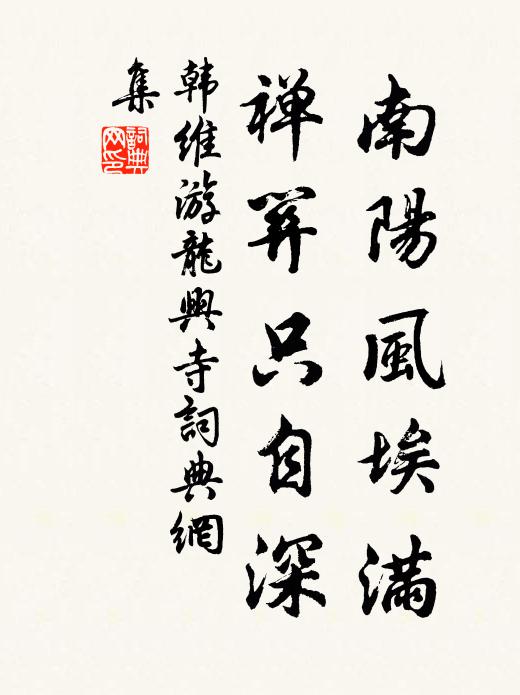 南陽風埃滿
禅關只自深
韩維游龍興寺詞典網
集
詞典网印